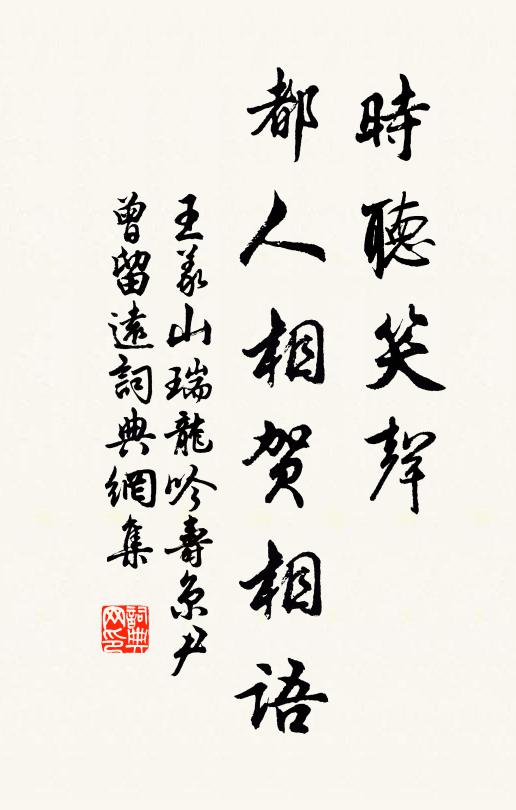 時聽笑聲
都人相賀相語
王義山瑞龍吟壽京尹
曾留遠詞典網集
詞典
网印